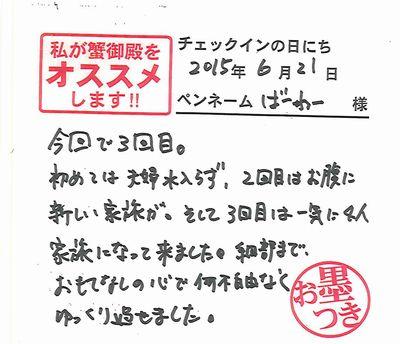 私が蟹御殿を
オススメ
します!!
チェックインの日にち
2015年 6月21日
ペンネーム ばーわー 様
今回で3回目。
初めては夫婦水入らず、2回目はお腹に
新しい家族が。そして3回目は一気に4人
家族になって来ました。細部まで、
おもてなしの心で何不自由なく
ゆっくり過せました。
お墨つき